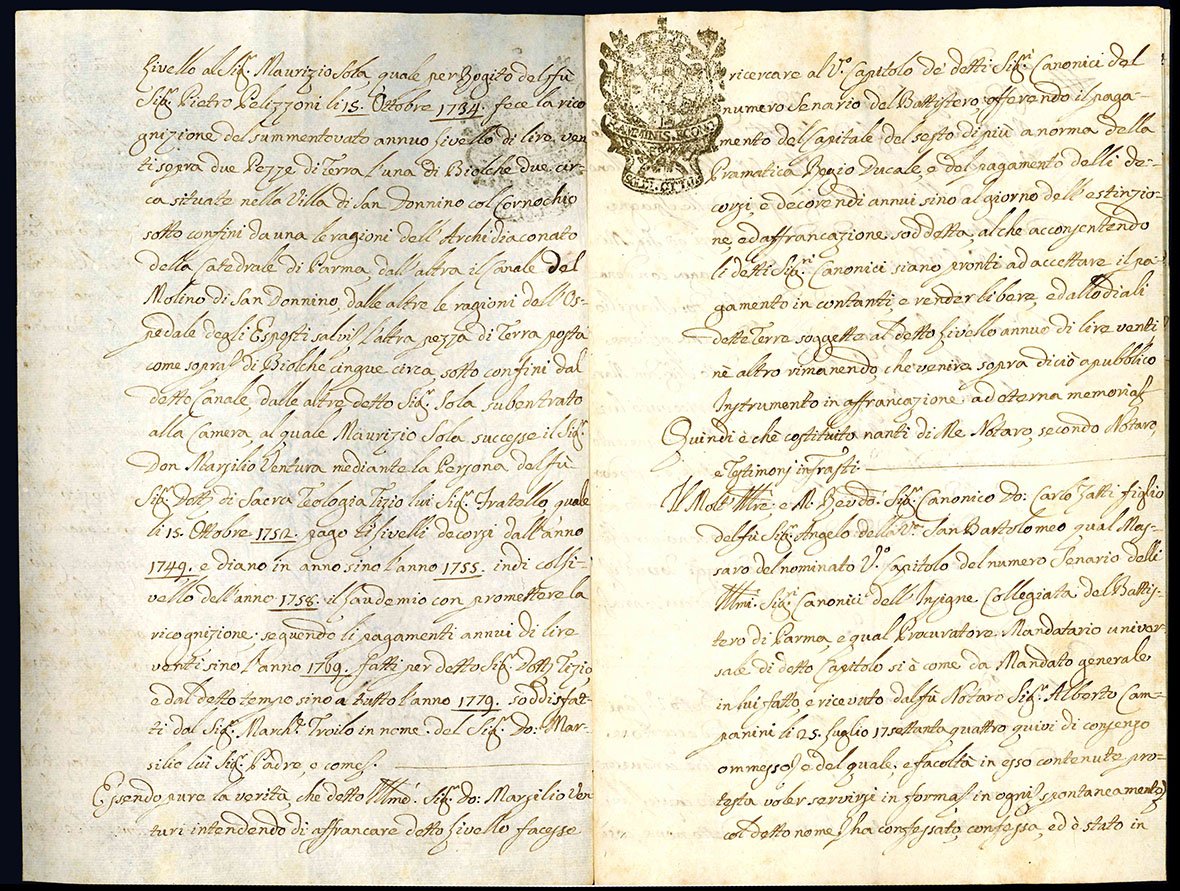 livello al Sig.r Maurizio Sola, quale per Rogito del fù
Sig.r Pietro Pelizzoni li 15. Ottobre 1734. fece la rico
gnizione del summentovato annuo livello di lire ven
ti sopra due Pezze di Terra l'una di Biolche due cir-
ca situate nella Villa di San Donnino col Cornochio
sotto confini da una le ragioni dell'Archidiaconato
della Catedrale di Parma, dall'altra il Canale del
Molino di San Donnino, dalle altre le ragioni dell'Os-
pedale degli Esposti salvi l'altra pezza di Terra posta
come sopra di Biolche cinque circa, sotto confini dal
detto Canale, dalle altre detto Sig.r Sola, subentrato
alla Camera, al quale Maurizio Sola successe il Sig.r
Don Marsilio Ventura mediante la Persona del fù
Sig.r Dott.r di Sacra Teologia Tizio lui Sig.r Fratello, quale
li 15. Ottobre 1752. pago li livelli decorsi dall'anno
1749. e di ano in anno sino l'anno 1755. indi col li-
vello dell'anno 1758. il laudemio con promettere la
ricognizione, seguendo li pagamenti annui di lire
venti sino l'anno 1769. fatti per detto Sig.r Dott.r Tizio,
e dal detto tempo sino a tutto l'anno 1779. soddisfat-
ti dal Sig.r March.e Troilo in nome del Sig.r Do: Mar-
silio lui Sig.r Padre, e come.
Essendo pure la verità, che detto Illmo. Sig.r Do: Marsilio Ven
turi intendendo di affrancare detto livello facesse
ricercare al V.o Capitolo de detti Sig.ri Canonici del
numero Senario del Battistero offerendo il paga-
mento del Capitale del sesto di più a norma della
Pramatica Regio Ducale, e del pagamento delli de-
corsi, e decorendi annui sino al giorno dell'estinzio-
ne, ed affrancazione soddetta, al che acconsentendo
li detti Sig.ri Canonici siano pronti ad accettare il pa-
gamento in contanti, e render libere, ed allodiali
dette Terre soggette al detto livello annuo di lire venti
nè altro rimanendo, che venire sopra di ciò a pubblico
Instrumento in affrancazione ad eterna memoria
Quindi è chè costituito nanti di Me Notaro, secondo Notaro,
e Testimonj infra'sti
Il Molt'Illrē e M. Revdo. Sig.r Canonico Do: Carlo Zatti figlio
del fù Sig.r Angelo della V.a San Bartolomeo qual Mas-
saro del nominato V.o Capitolo del numero Senario delli
Illmi. Sig.ri Canonici dell'Insigne Collegiata del Battis-
tero di Parma, e qual Procuratore Mandatario univer-
sale di detto Capitolo si è come da Mandato generale
in lui fatto, e ricevuto dal fù Notaro Sig.r Alberto Cam-
panini li 25. Luglio 17settanta quattro, quivi di consenzo
ommesso e del quale, e facoltà in esso contenute pro-
testa voler servirsi in forma in ogni spontaneamente
col detto nome ha confessato, confessa, ed è stato in